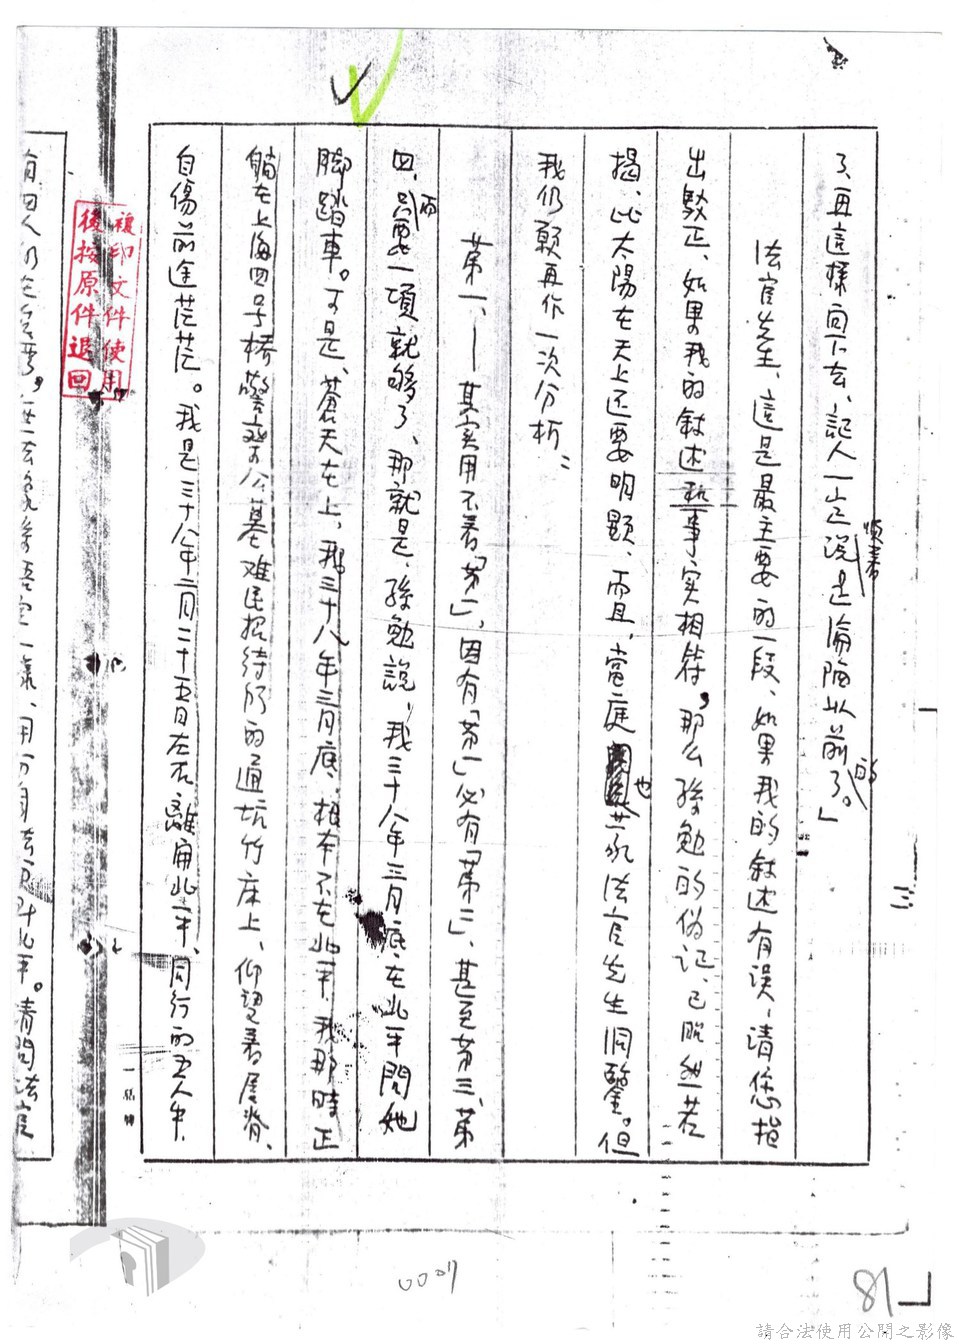 了、再這樣問下去、記人一定說是淪陷以前了。」
順着
的
法官先生、這是最主要的一段、如果我的敘述有誤、請您指
出駁正、如果我的敘述與事實相符，那么孫勉的偽記、已昭然若
揭、比太陽在天上还要明顯、而且，當庭也蒙法官先生洞鑒。但
我仍願再作一次分析：
第一、——其实用不着「第一」，因有「第一」必有「第二」、甚至第三、第
四、而只要一項就够了、那就是，孫勉說，我三十八年三月底，在北平問她
脚踏車。可是、蒼天在上，我三十八年三月底，根本不在北平，我那時正
躺在上海四子橋警察公墓难民招待所的通坑竹床上、仰望着屋脊、
自傷前途茫茫。我是三十八年二月二十五日左右離开北平、同行的五人中，
複印文件使用
後按原件退回
三
一品牌
81
請合法使用公開之影像